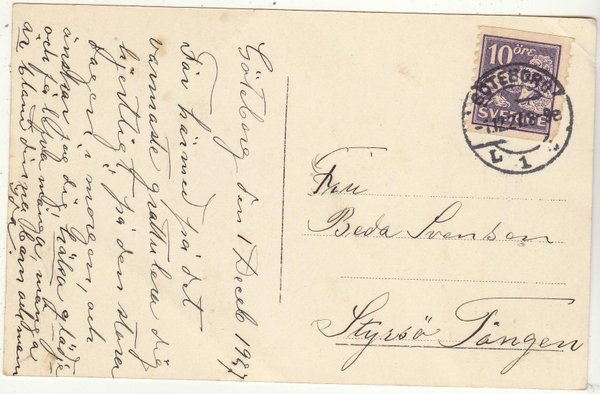 Göteborg den 1 Deceb 1927
Får härmed på det
varmaste gratulera dig
hjertligt på den stora
dagen i morgon, och
önskar jag dig hälsa glädje
och få lefva många, många
år bland dina barn och man
10 ÖRE
SVERIGE
GÖTEBORG
L 1
Fru
Beda Svenson
Styrsö Tången